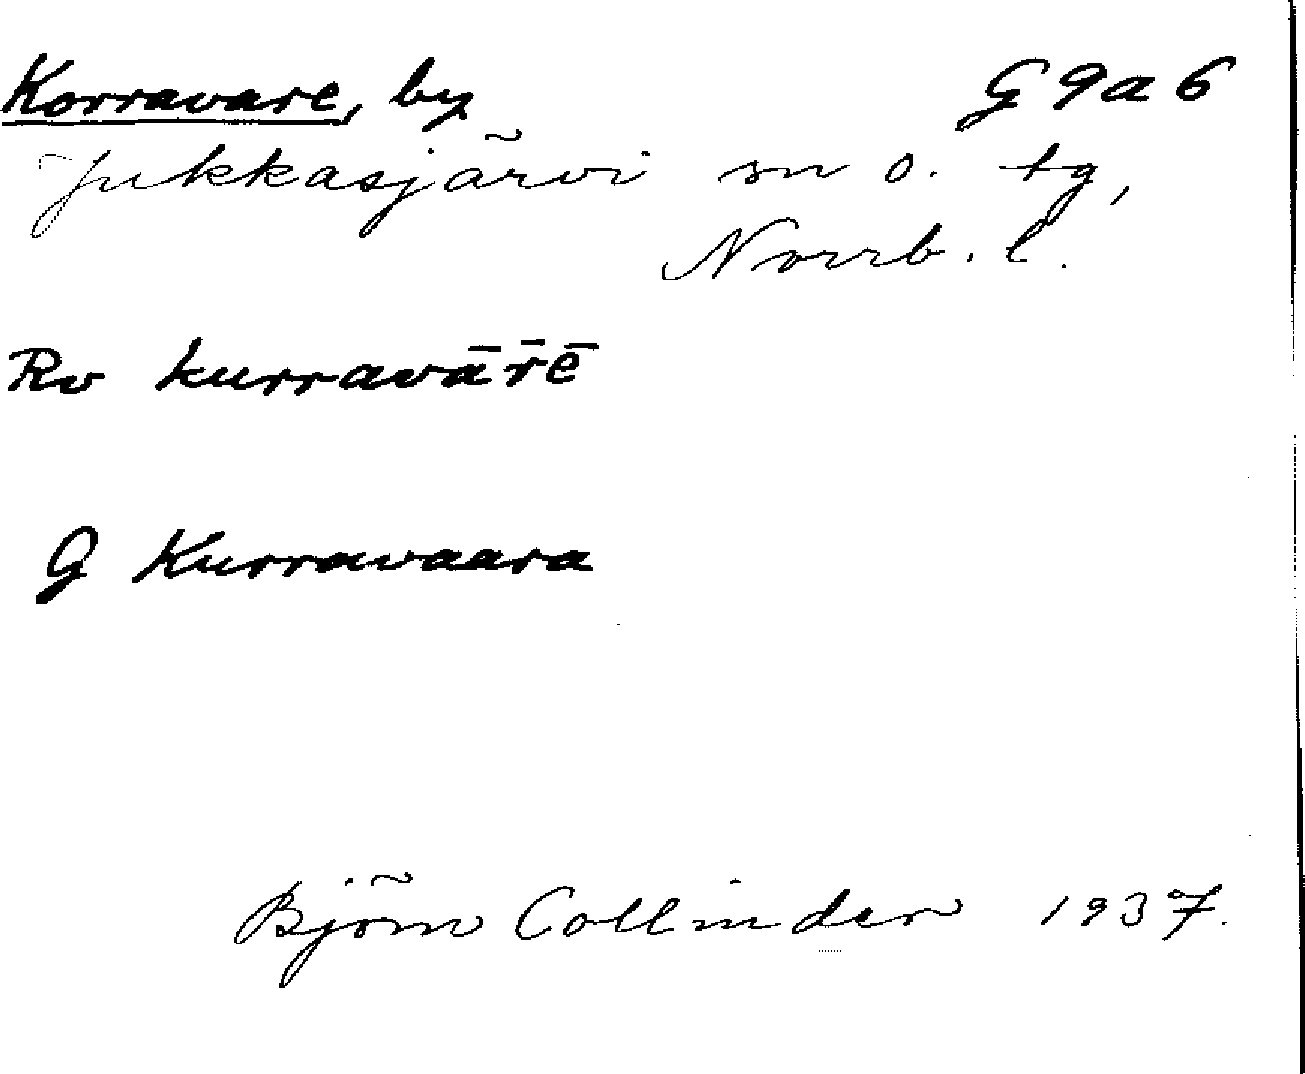 Korravare, by G 9 a 6
Jukkasjärvi sn o. tg,
Norrb. l.
Rv kurravār̄ē
G Kurravaara
Björn Collinder 1937.